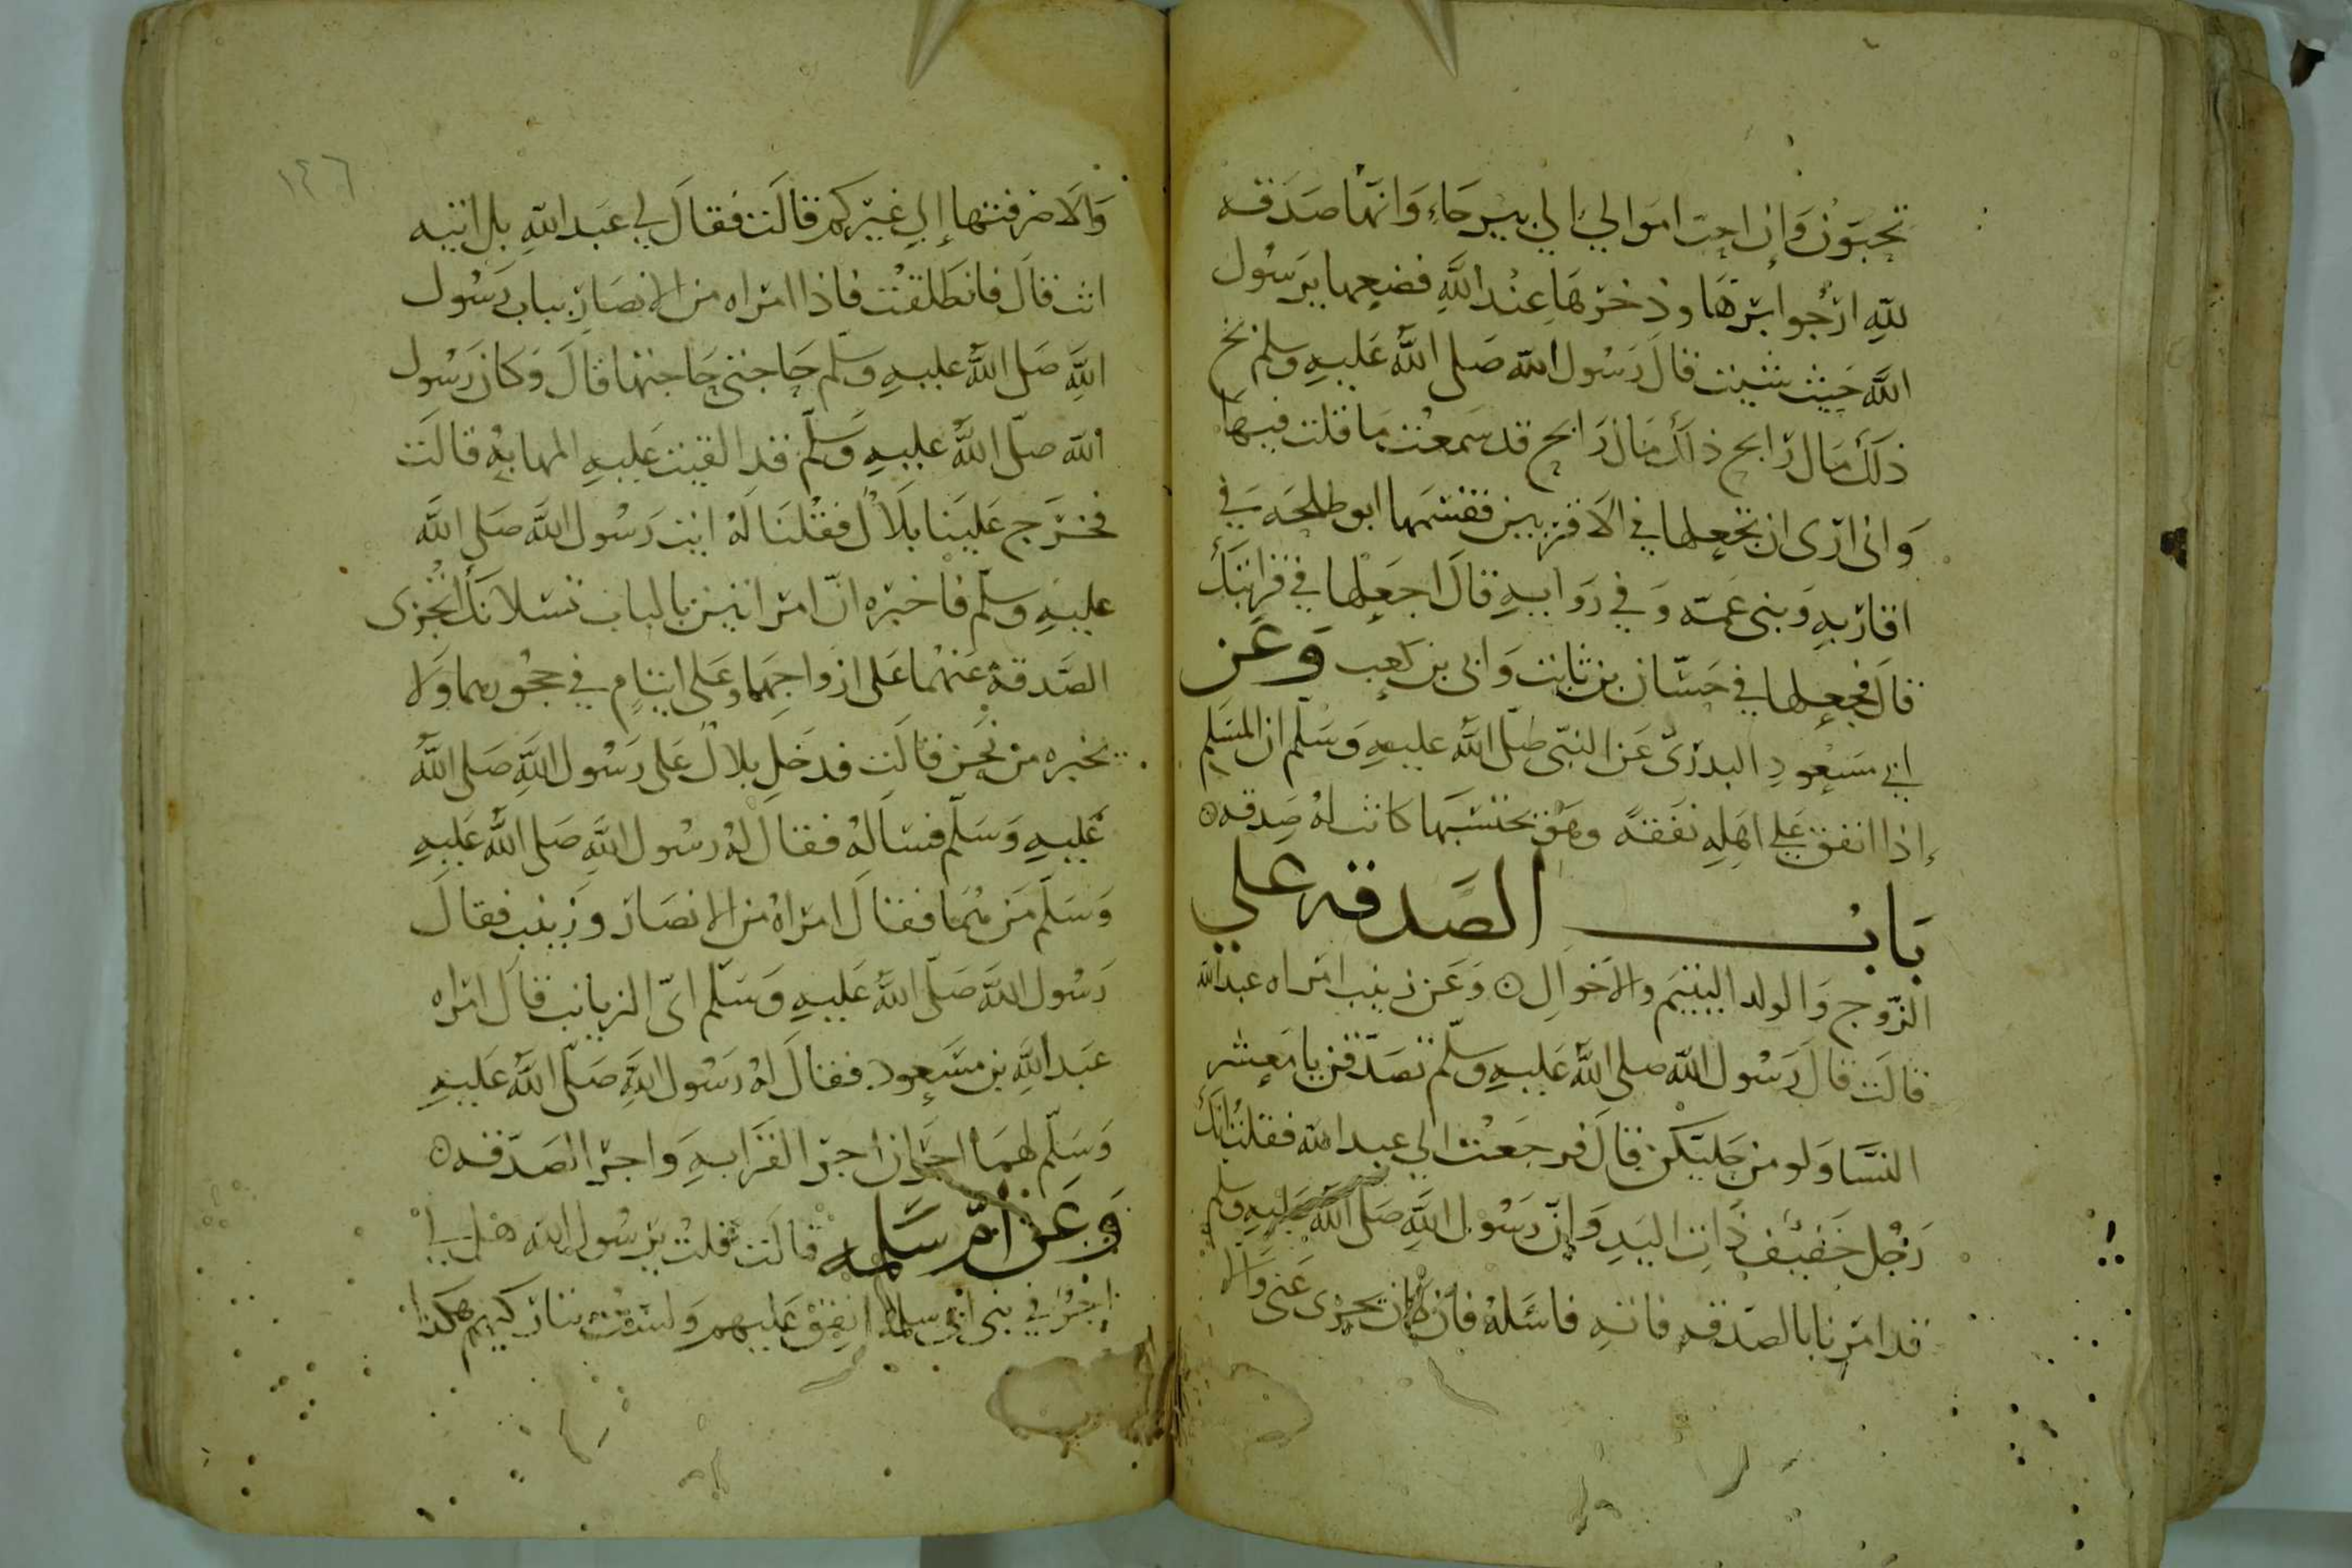 تحبون وان احب اموالي الي بيرحاء وانها صدقه
لله ارجوا برها وذخرها عند الله فضعها يرسول
الله حيث شيت قال رسول الله صلى الله عليه وسلم بخ
ذلك مال رابح ذلك مال رابح قد سمعت ما قلت فيها
واني ارى ان تجعلها في الاقربين فقسمها ابو طلحه في
اقاربه وبني عمه وفي روايه قال اجعلها في قرابتك
قال فجعلها في حسان بن ثابت وابي بن كعب وعن
ابي مسعود البدري عن النبي صلى الله عليه وسلم ان المسلم
إذا انفق علي اهله نفقة وهو يحتسبها كانت له صدقه
باب الصدقه علي
الزوج والولد اليتيم والاخوال وعن زينب امراه عبد الله
قالت قال رسول الله صلى الله عليه وسلم تصدقن يا معشر
النسا ولو من حليكن قال فرجعت الي عبد الله فقلت انك
رجل خفيف ذات اليد وإن رسول الله صلى الله عليه وسلم
قد امرنا بالصدقه فاته فاسئله فان كان يجزى عني والا
١٤٦
والا صرفتها إلي غيركم قالت فقال لي عبد الله بل اتيه
انت قال فانطلقت فاذا امراه من الانصار بباب رسول
الله صلى الله عليه وسلم حاجتي حاجتها قال وكان رسول
الله صلى الله عليه وسلم قد القيت عليه المهابه قالت
فخرج علينا بلال فقلنا له ايت رسول الله صلى الله
عليه وسلم فاخبره ان امراتين بالباب تسلانك اتجزى
الصدقة عنهما على ازواجهما وعلى ايتام في حجورهما ولا
تخبره من نحن قالت فدخل بلال على رسول الله صلى الله
عليه وسلم فساله فقال له رسول الله صلى الله عليه
وسلم من هما فقال امراة من الانصار وزينب فقال
رسول الله صلى الله عليه وسلم اي الزيانب قال امراه
عبد الله بن مسعود فقال له رسول الله صلى الله عليه
وسلم لهما اجران اجر القرابه واجر الصدقه
وعن ام سلمه قالت قلت يرسول الله هل لي
اجر في بني ابي سلمة انفق عليهم ولست بتاركهم هكذا